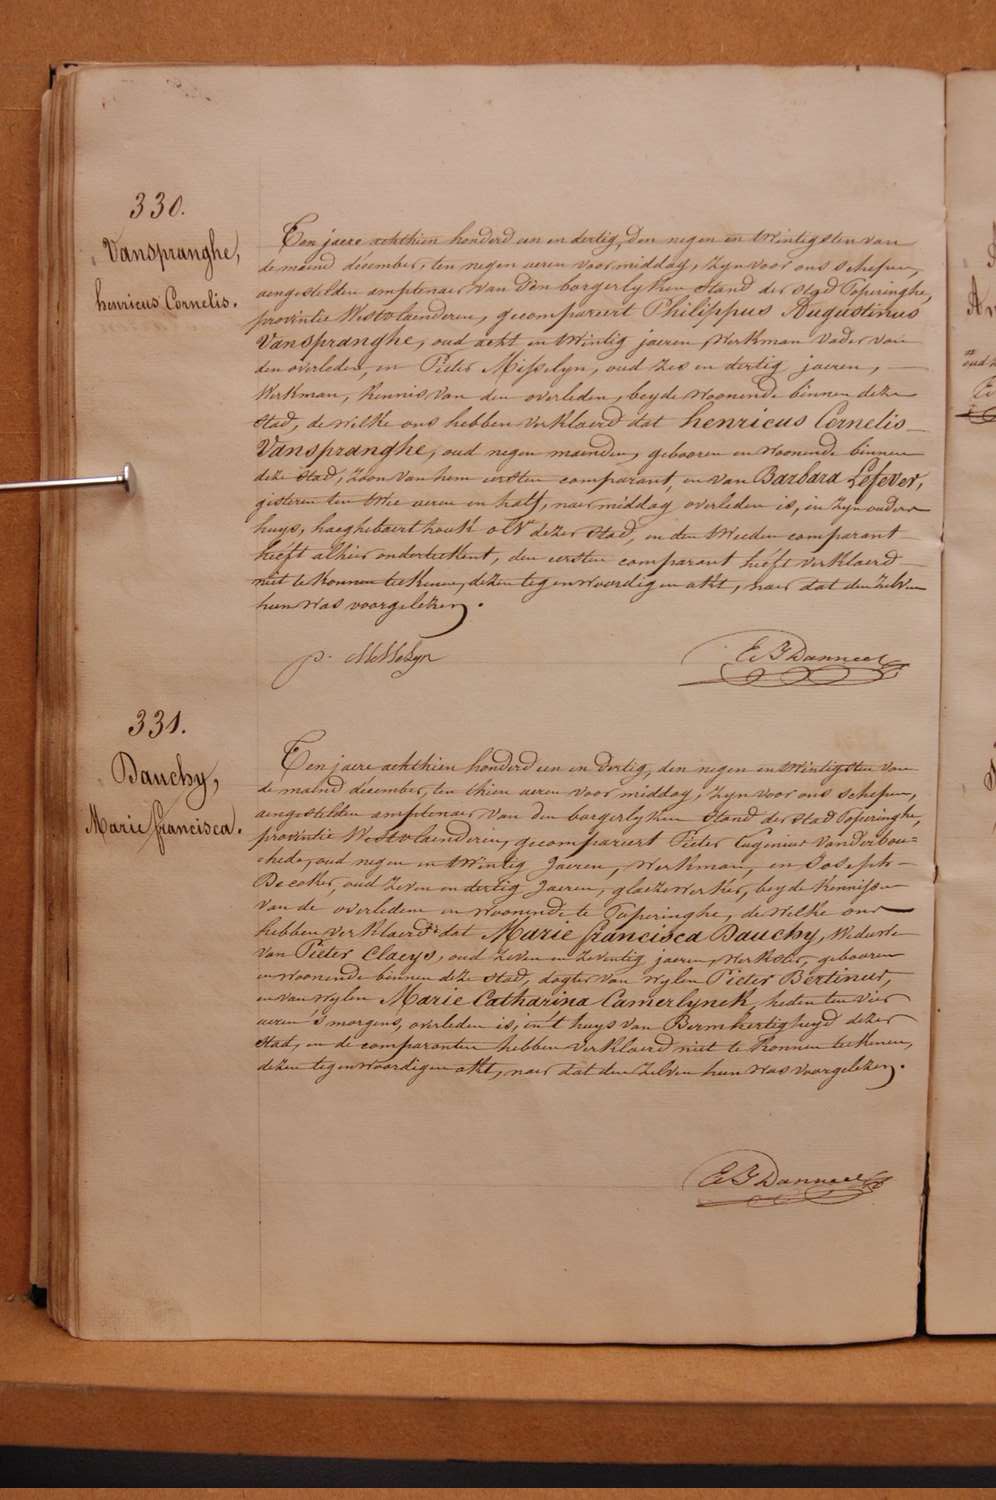 330.
Vanspranghe,
henricus Cornelis.
Ten jaere achthien honderd een en dertig, den negen en twintigsten van
de maend december, ten negen aeren voormiddag, zyn voor ons schepen,
aengestelden amptenaer van den borgerlyken stand der stad Poperinghe,
provintie Westvlaenderen, gecompareert Philippus Augustinus
Vanspranghe, oud acht en twintig jaeren, werkman vader van
den overleden, en Pieter Misselyn, oud zes en dertig jaeren,
werkman, kennis van den overleden, beyde woonende binnen deze
stad, de welke ons hebben verklaerd dat henricus Cornelis
Vanspranghe, oud negen maenden, gebooren en woonende binnen
deze stad, zoon van hem eersten comparant, en van Barbara Lefever,
gisteren ten twee aeren en half, naermiddag overleden is, in zyn ouders
huys, haeghebaert houk dezer stad, en den tweeden comparant
heeft alhier onderteekent, den eersten comparant heeft verklaerd
niet te konnen teekenen, dezen tegenwoordigen akt, naer dat den zelven
hun was voorgelezen.
p. 
E J Danneel
331.
Dauchy,
Marie francisca.
Ten jaere achthien honderd een en dertig, den negen en twintigsten van
de maend december, ten thien aeren voor middag, zyn voor ons schepen,
aengestelden amptenaer van den borgerlyken stand der stad Poperinghe,
provintie Westvlaenderen, gecompareert Pieter Eugenius Vanderbou=
chede, oud negen en twintig Jaeren, werkman, en Joseph
Decoker, oud zeven en dertig Jaeren, glaezewerker, beyde kennissen
van de overledene en woonende te Poperinghe, de welke ons
hebben verklaerd dat Marie francisca Dauchy, weduwe
van Pieter Claeys, oud zeven en zeventig jaeren, werkster, gebooren
en woonende binnen deze stad, dogter van wylen Pieter Bertinus,
en van wylen Marie Catharina Camerlynck, heden ten vier
aeren 's morgens, overleden is, in 't huys van Bermhertigheyd dezer
stad, en de comparanten hebben verklaerd niet te konnen teekenen,
dezen tegenwoordigen akt, naer dat den zelven hun was voorgelezen.
E J Danneel